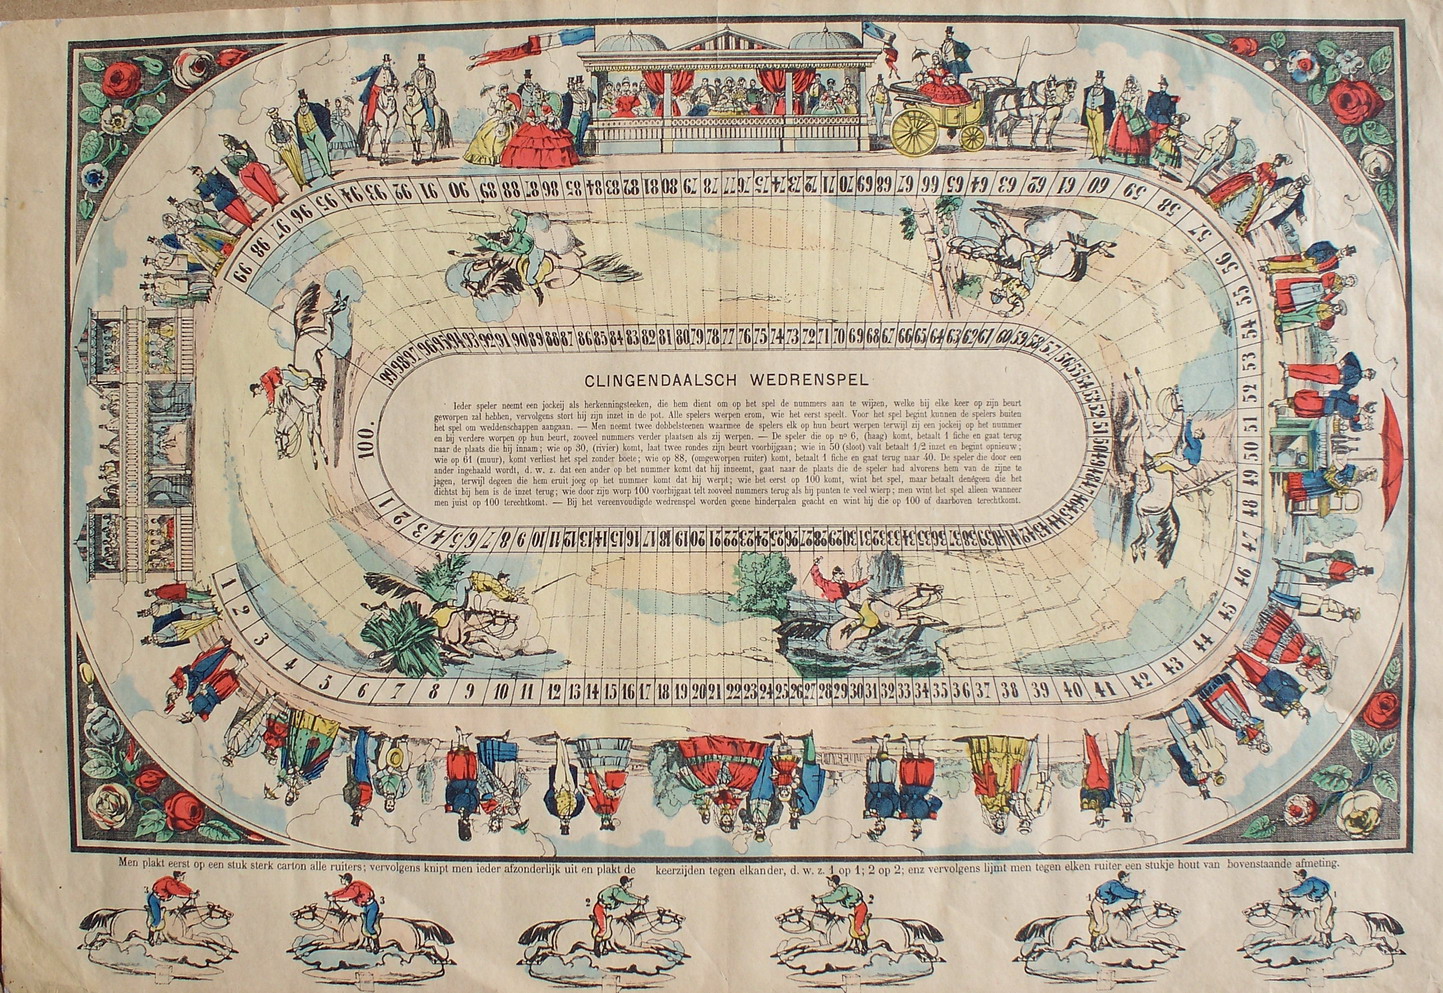 CLINGENDAALSCH WEDRENSPEL
Ieder speler neemt een jockeij als herkenningsteeken, die hem dient om op het spel de nummers aan te wijzen, welke hij elke keer op zijn beurt
geworpen zal hebben, vervolgens stort hij zijn inzet in de pot. Alle spelers werpen erom, wie het eerst speelt. Voor het spel begint kunnen de spelers buiten
het spel om weddenschappen aangaan. — Men neemt twee dobbelsteenen waarmee de spelers elk op hun beurt werpen terwijl zij een jockeij op het nummer
en bij verdere worpen op hun beurt, zooveel nummers verder plaatsen als zij werpen. — De speler die op nº 6, (haag) komt, betaalt 1 fiche en gaat terug
naar de plaats die hij innam; wie op 30, (rivier) komt, laat twee rondes zijn beurt voorbijgaan; wie in 50 (sloot) valt betaalt 1/2 inzet en begint opnieuw;
wie op 61 (muur), komt verliest het spel zonder boete; wie op 88, (omgeworpen ruiter) komt, betaalt 1 fiche en gaat terug naar 40. De speler die door een
ander ingehaald wordt, d. w. z. dat een ander op het nummer komt dat hij inneemt, gaat naar de plaats die de speler had alvorens hem van de zijne te
jagen, terwijl degeen die hem eruit joeg op het nummer komt dat hij werpt; wie het eerst op 100 komt, wint het spel, maar betaalt denégeen die het
dichtst bij hem is de inzet terug; wie door zijn worp 100 voorbijgaat telt zooveel nummers terug als hij punten te veel wierp; men wint het spel alleen wanneer
men juist op 100 terechtkomt. — Bij het vereenvoudigde wedrenspel worden geene hinderpalen geacht en wint hij die op 100 of daarboven terechtkomt.
100.
1 2 3 4 5 6 7 8 9 10 11 12 13 14 15 16 17 18 19 20 21 22 23 24 25 26 27 28 29 30 31 32 33 34 35 36 37 38 39 40 41 42 43 44 45 46 47 48 49 50 51 52 53 54 55 56 57 58 59 60 61 62 63 64 65 66 67 68 69 70 71 72 73 74 75 76 77 78 79 80 81 82 83 84 85 86 87 88 89 90 91 92 93 94 95 96 97 98 99
1 2 3 4 5 6 7 8 9 10 11 12 13 14 15 16 17 18 19 20 21 22 23 24 25 26 27 28 29 30 31 32 33 34 35 36 37 38 39 40 41 42 43 44 45 46 47 48 49 50 51 52 53 54 55 56 57 58 59 60 61 62 63 64 65 66 67 68 69 70 71 72 73 74 75 76 77 78 79 80 81 82 83 84 85 86 87 88 89 90 91 92 93 94 95 96 97 98 99
Men plakt eerst op een stuk sterk carton alle ruiters; vervolgens knipt men ieder afzonderlijk uit en plakt de keerzijden tegen elkander, d. w. z. 1 op 1; 2 op 2; enz vervolgens lijmt men tegen elken ruiter een stukje hout van bovenstaande afmeting.
3 3 2 2 1 1